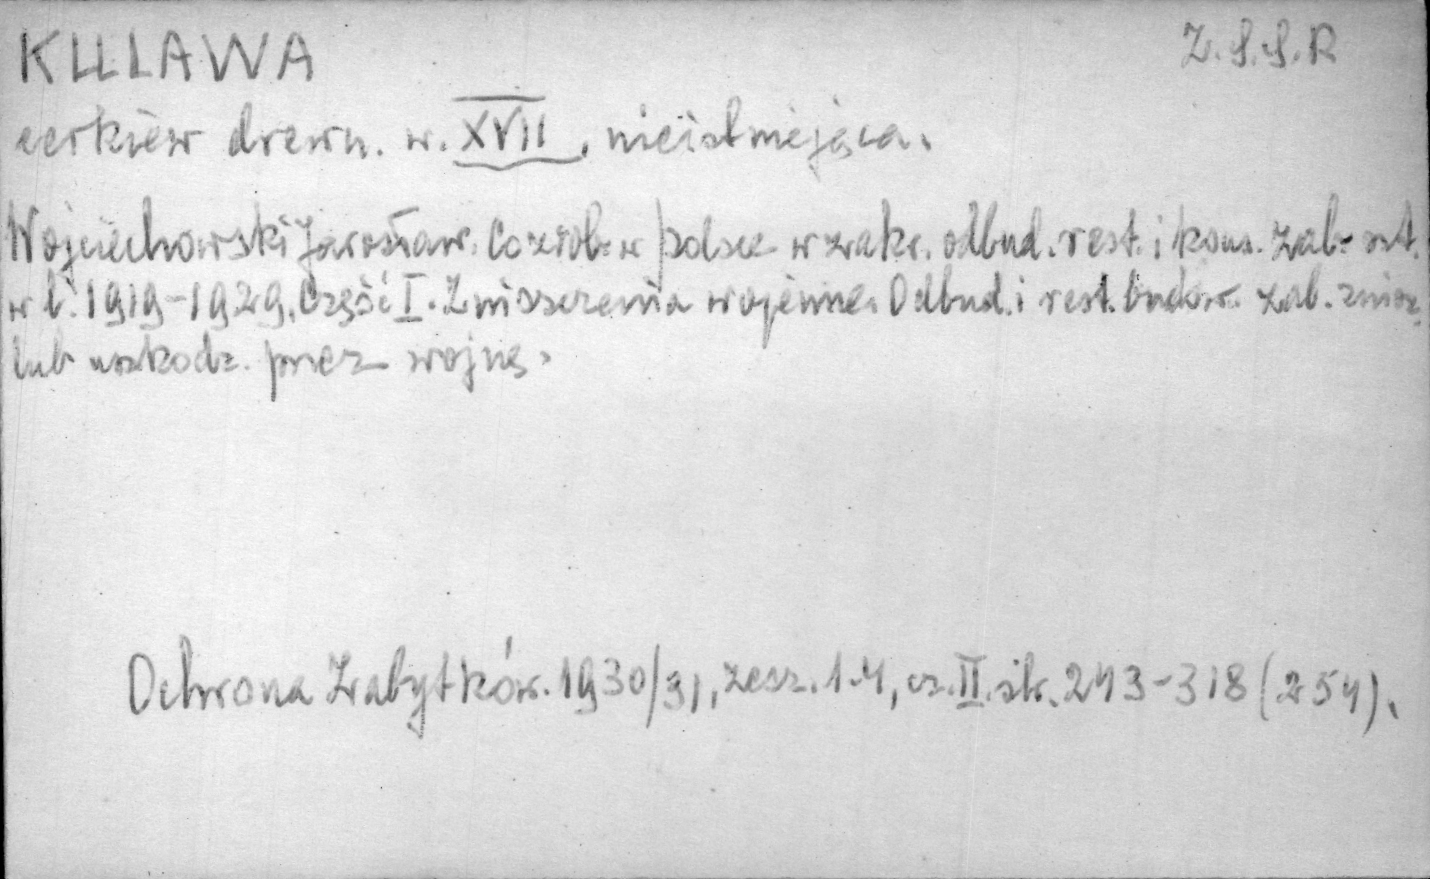 KULAWA
Z.S.S.R
cerkiew drewn. w. XVII, nieistniejąca.
Wojciechowski Jarosław. Co zrob. w Polsce w zakr. odbud. rest. i kons. zab. szt.
w l. 1919-1929. Część I. Zniszczenia wojenne. Odbud. i rest. budow. zab. zniszcz.
lub uszkodz. przez wojnę.
Ochrona Zabytków. 1930/31, zesz. 1-4, cz. II. str. 243-318 (254).